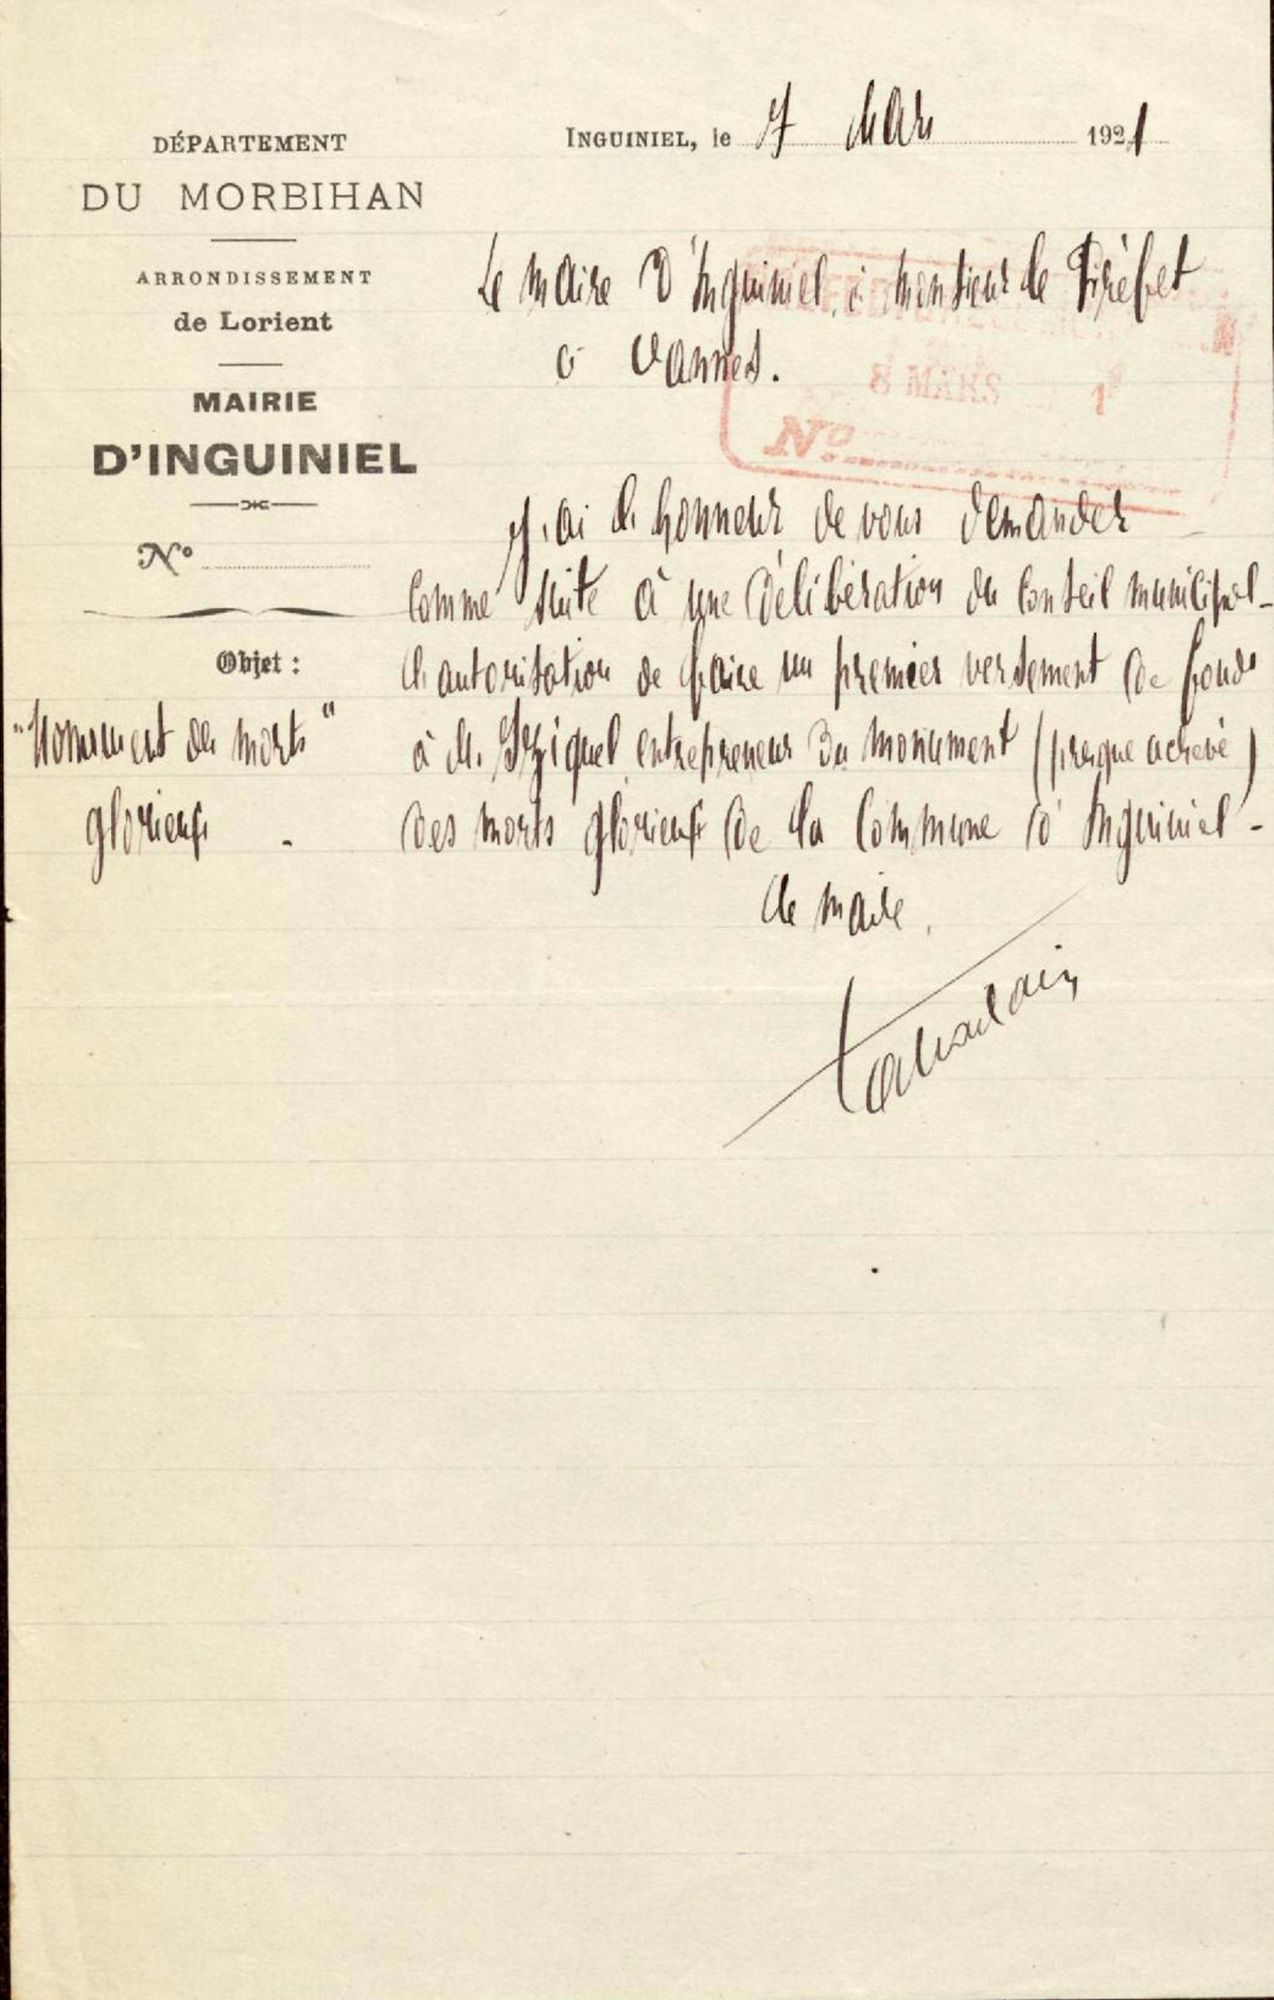 DÉPARTEMENT
DU MORBIHAN
ARRONDISSEMENT
de Lorient
MAIRIE
D'INGUINIEL
N°
Objet :
"Monument des morts"
glorieux -
INGUINIEL, le 7 Mars 1921
Le Maire d'Inguiniel, à Monsieur le Préfet
à Vannes.
8 MARS
N°
J'ai l'honneur de vous demander
comme suite à une délibération du Conseil municipal -
l'autorisation de faire un premier versement de fonds
à M. entrepreneur du monument (presque achevé)
des morts glorieux de la Commune d'Inguiniel -
Le Maire,